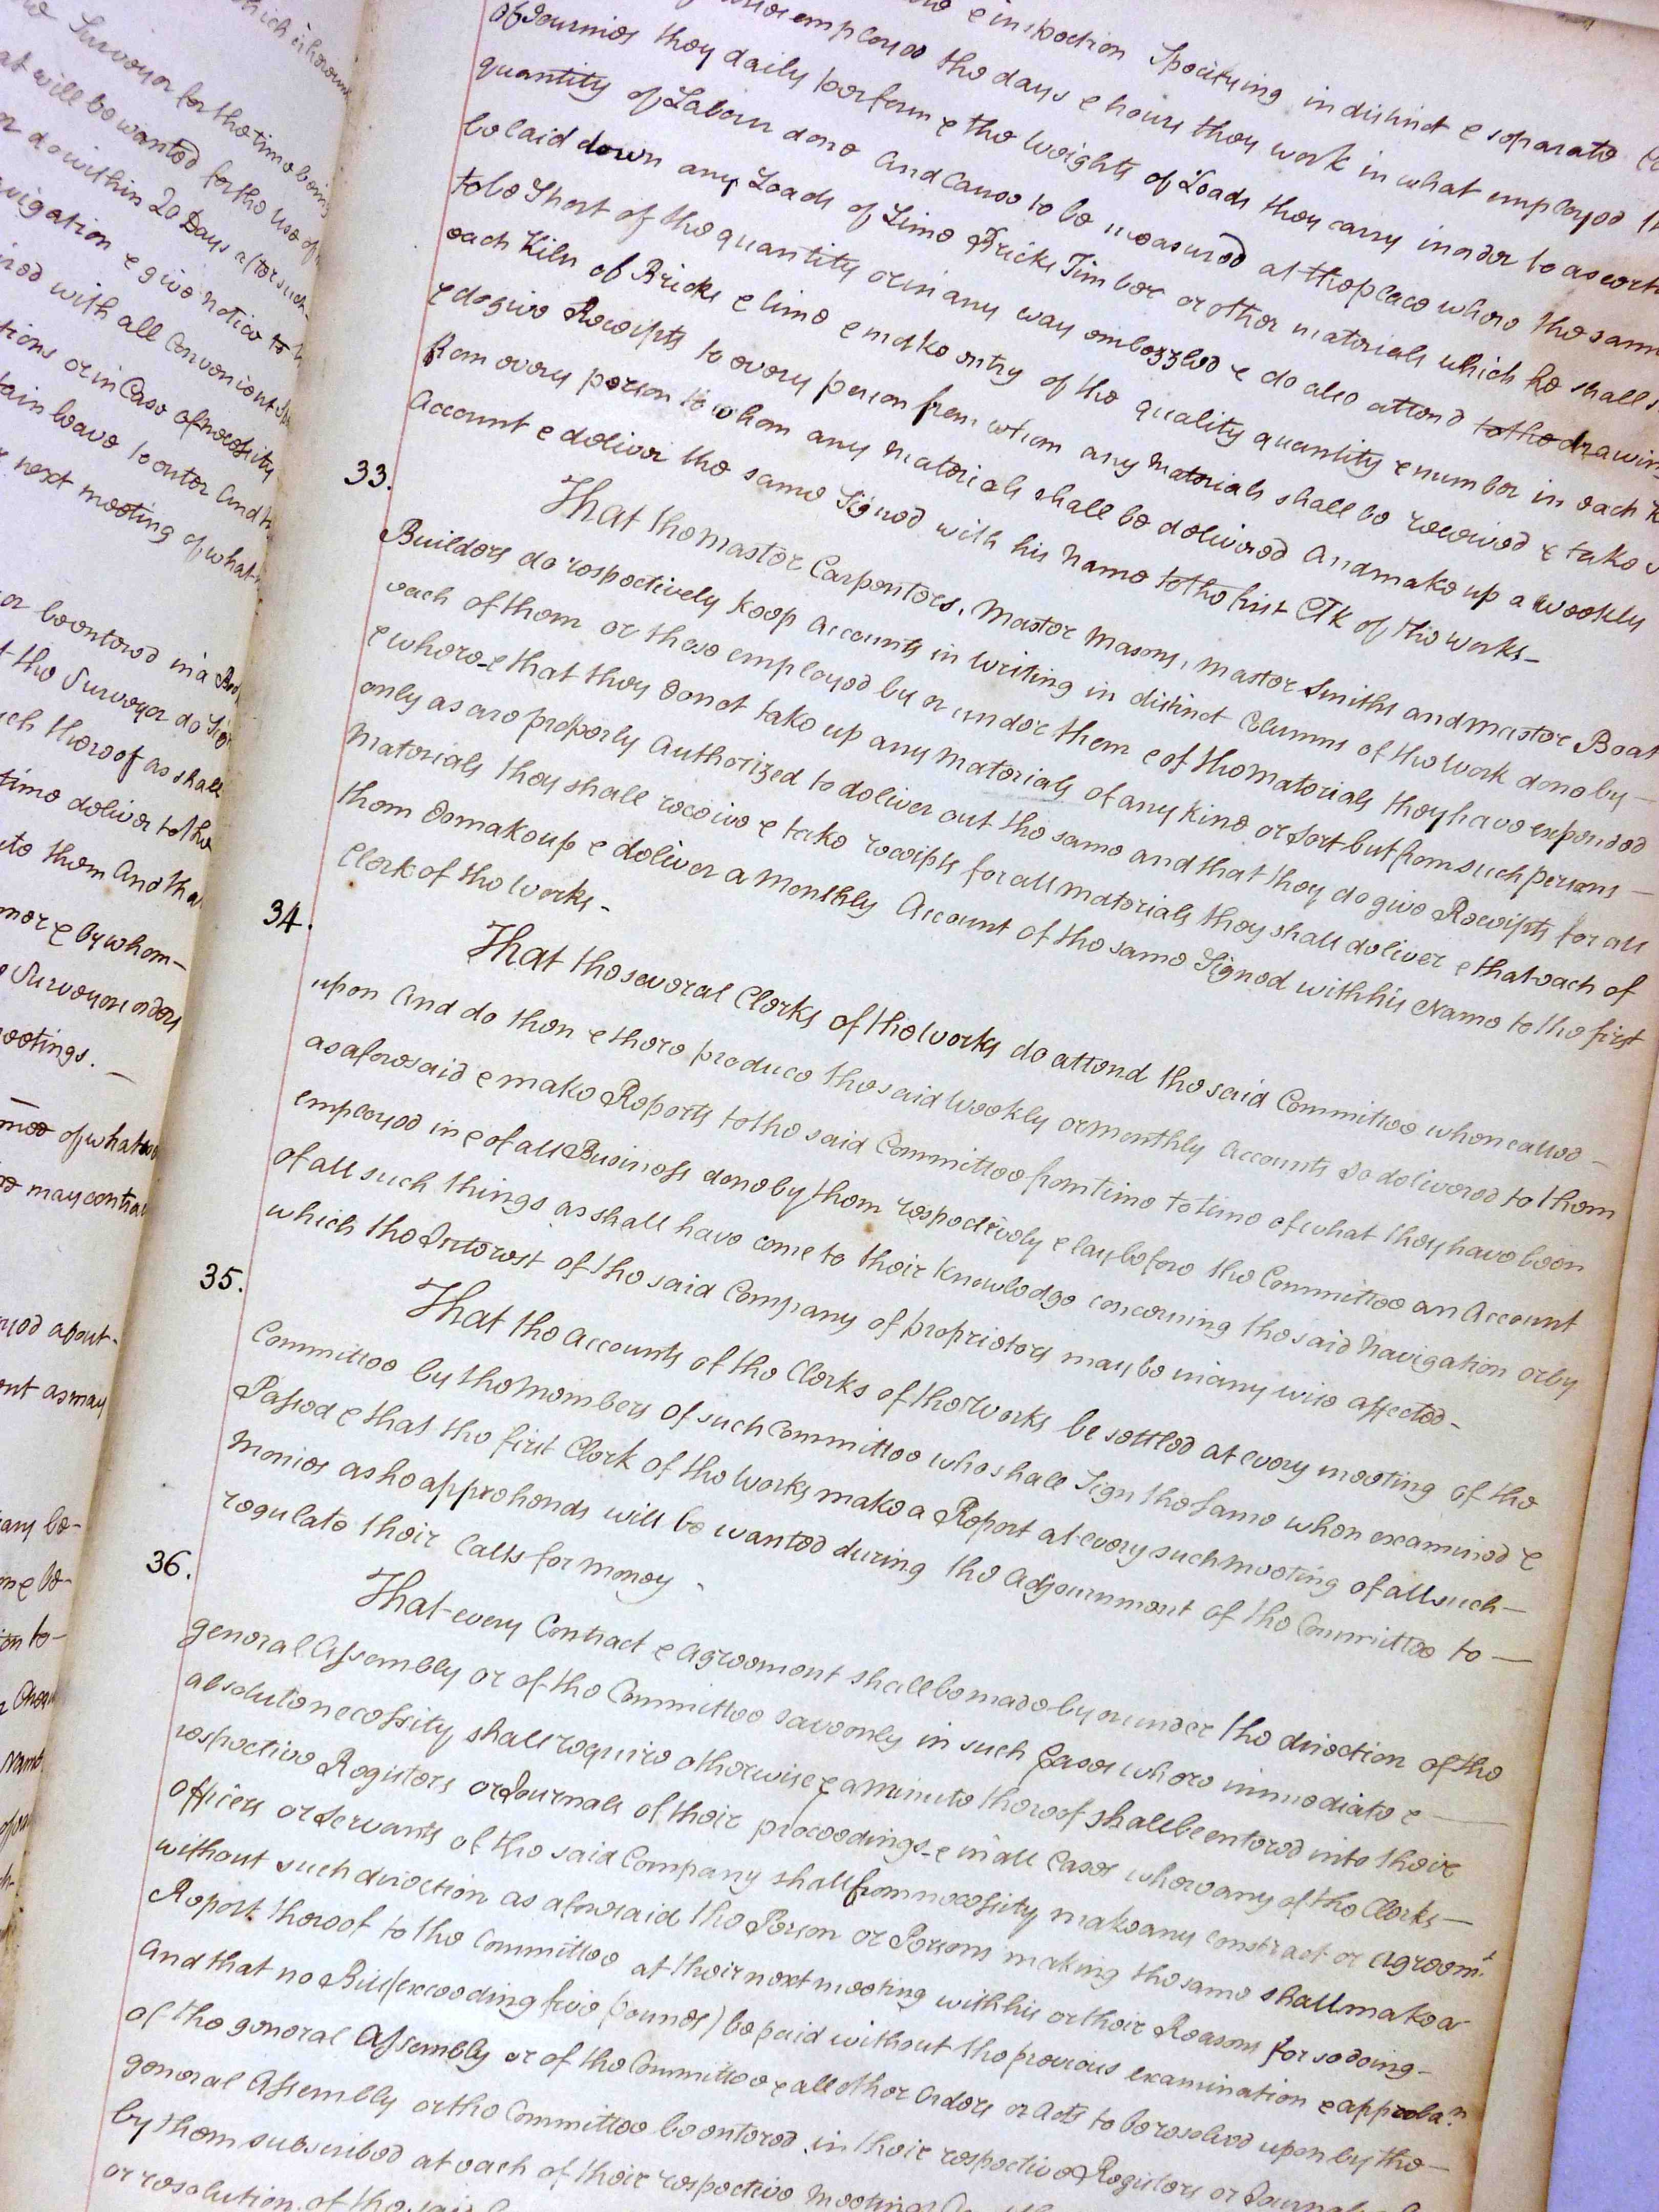 which is hereina
Surveyor for the time being
at will be wanted for the use of
do within 20 Days after such
avigation & give notice to
ired with all Convenient
tions or in Case of necessity
tain leave to enter And
next meeting of what
or be entered in a Boo
the Surveyor do Sign
ch thereof as shall
time deliver to the
to them And tha
mor & by whom -
Surveyor orders
eetings. -
mee of what
may contra
yed about -
nt as may
any be -
on to -
& inspection Specifying in distinct & separate
employed the days & hours they work in what employed
of Journies they daily perform & the weights of Loads they carry in order to ascert
quantity of Labour done And Cause to be measured at the place where the same
be laid down any Loads of Lime Bricks Timber or other materials which he shall
to be Short of the quantity or in any way embezzled & do also attend to the drawin
each Kiln of Bricks & lime & make entry of the quality quantity & number in each K
& do give Receipts to every person from whom any Materials shall be received & take
from every person to whom any materials shall be delivered And make up a weekly
Account & deliver the same Signed with his Name to the first Clk of the works -
33. That the master Carpenters, Master Masons, Master Smiths and Master Boat
Builders do respectively keep accounts in writing in distinct Columns of the work done by -
each of them or those employed by or under them & of the Materials they have expended
& where & that they do not take up any Materials of any kind or Sort but from such persons -
only as are properly Authorized to deliver out the same and that they do give Receipts for all
Materials they shall receive & take receipts for all materials they shall deliver & that each of
them do make up & deliver a Monthly Account of the same Signed with his Name to the first
Clerk of the Works -
34. That the several Clerks of the works do attend the said Committee when called -
upon And do then & there produce the said Weekly or Monthly Accounts so delivered to them
as aforesaid & make Reports to the said Committee from time to time of what they have been
employed in & of all Business done by them respectively & lay before the Committee an Account
of all such things as shall have come to their knowledge concerning the said Navigation or by
which the Interest of the said Company of proprietors may be in any wise affected -
35. That the Accounts of the Clerks of the Works be settled at every meeting of the
Committee by the Members of such Committee who shall Sign the Same when examined &
Passed & that the first Clerk of the Works make a Report at every such meeting of all such -
Monies as he apprehends will be wanted during the Adjournment of the Committee to -
regulate their Calls for Money -
36. That every Contract & agreement shall be made by or under the direction of the
general Assembly or of the Committee save only in such Cases where immediate & -
absolute necessity shall require otherwise & a Minute thereof shall be entered into their
respective Registers or Journals of their proceedings - & in all Cases where any of the Clerks -
Officers or Servants of the said Company shall from necessity make any contract or Agreemt
without such direction as aforesaid the Person or Persons making the same shall make a
Report thereof to the Committee at their next meeting with his or their Reasons for so doing -
And that no Bill (exceeding five pounds) be paid without the previous examination & approban
of the general Assembly or of the Committee & all other Orders or Acts to be resolved upon by the -
general Assembly or the Committee be entered in their respective Registers or Journals
by them subscribed at each of their respective Meetings
or resolution of the said